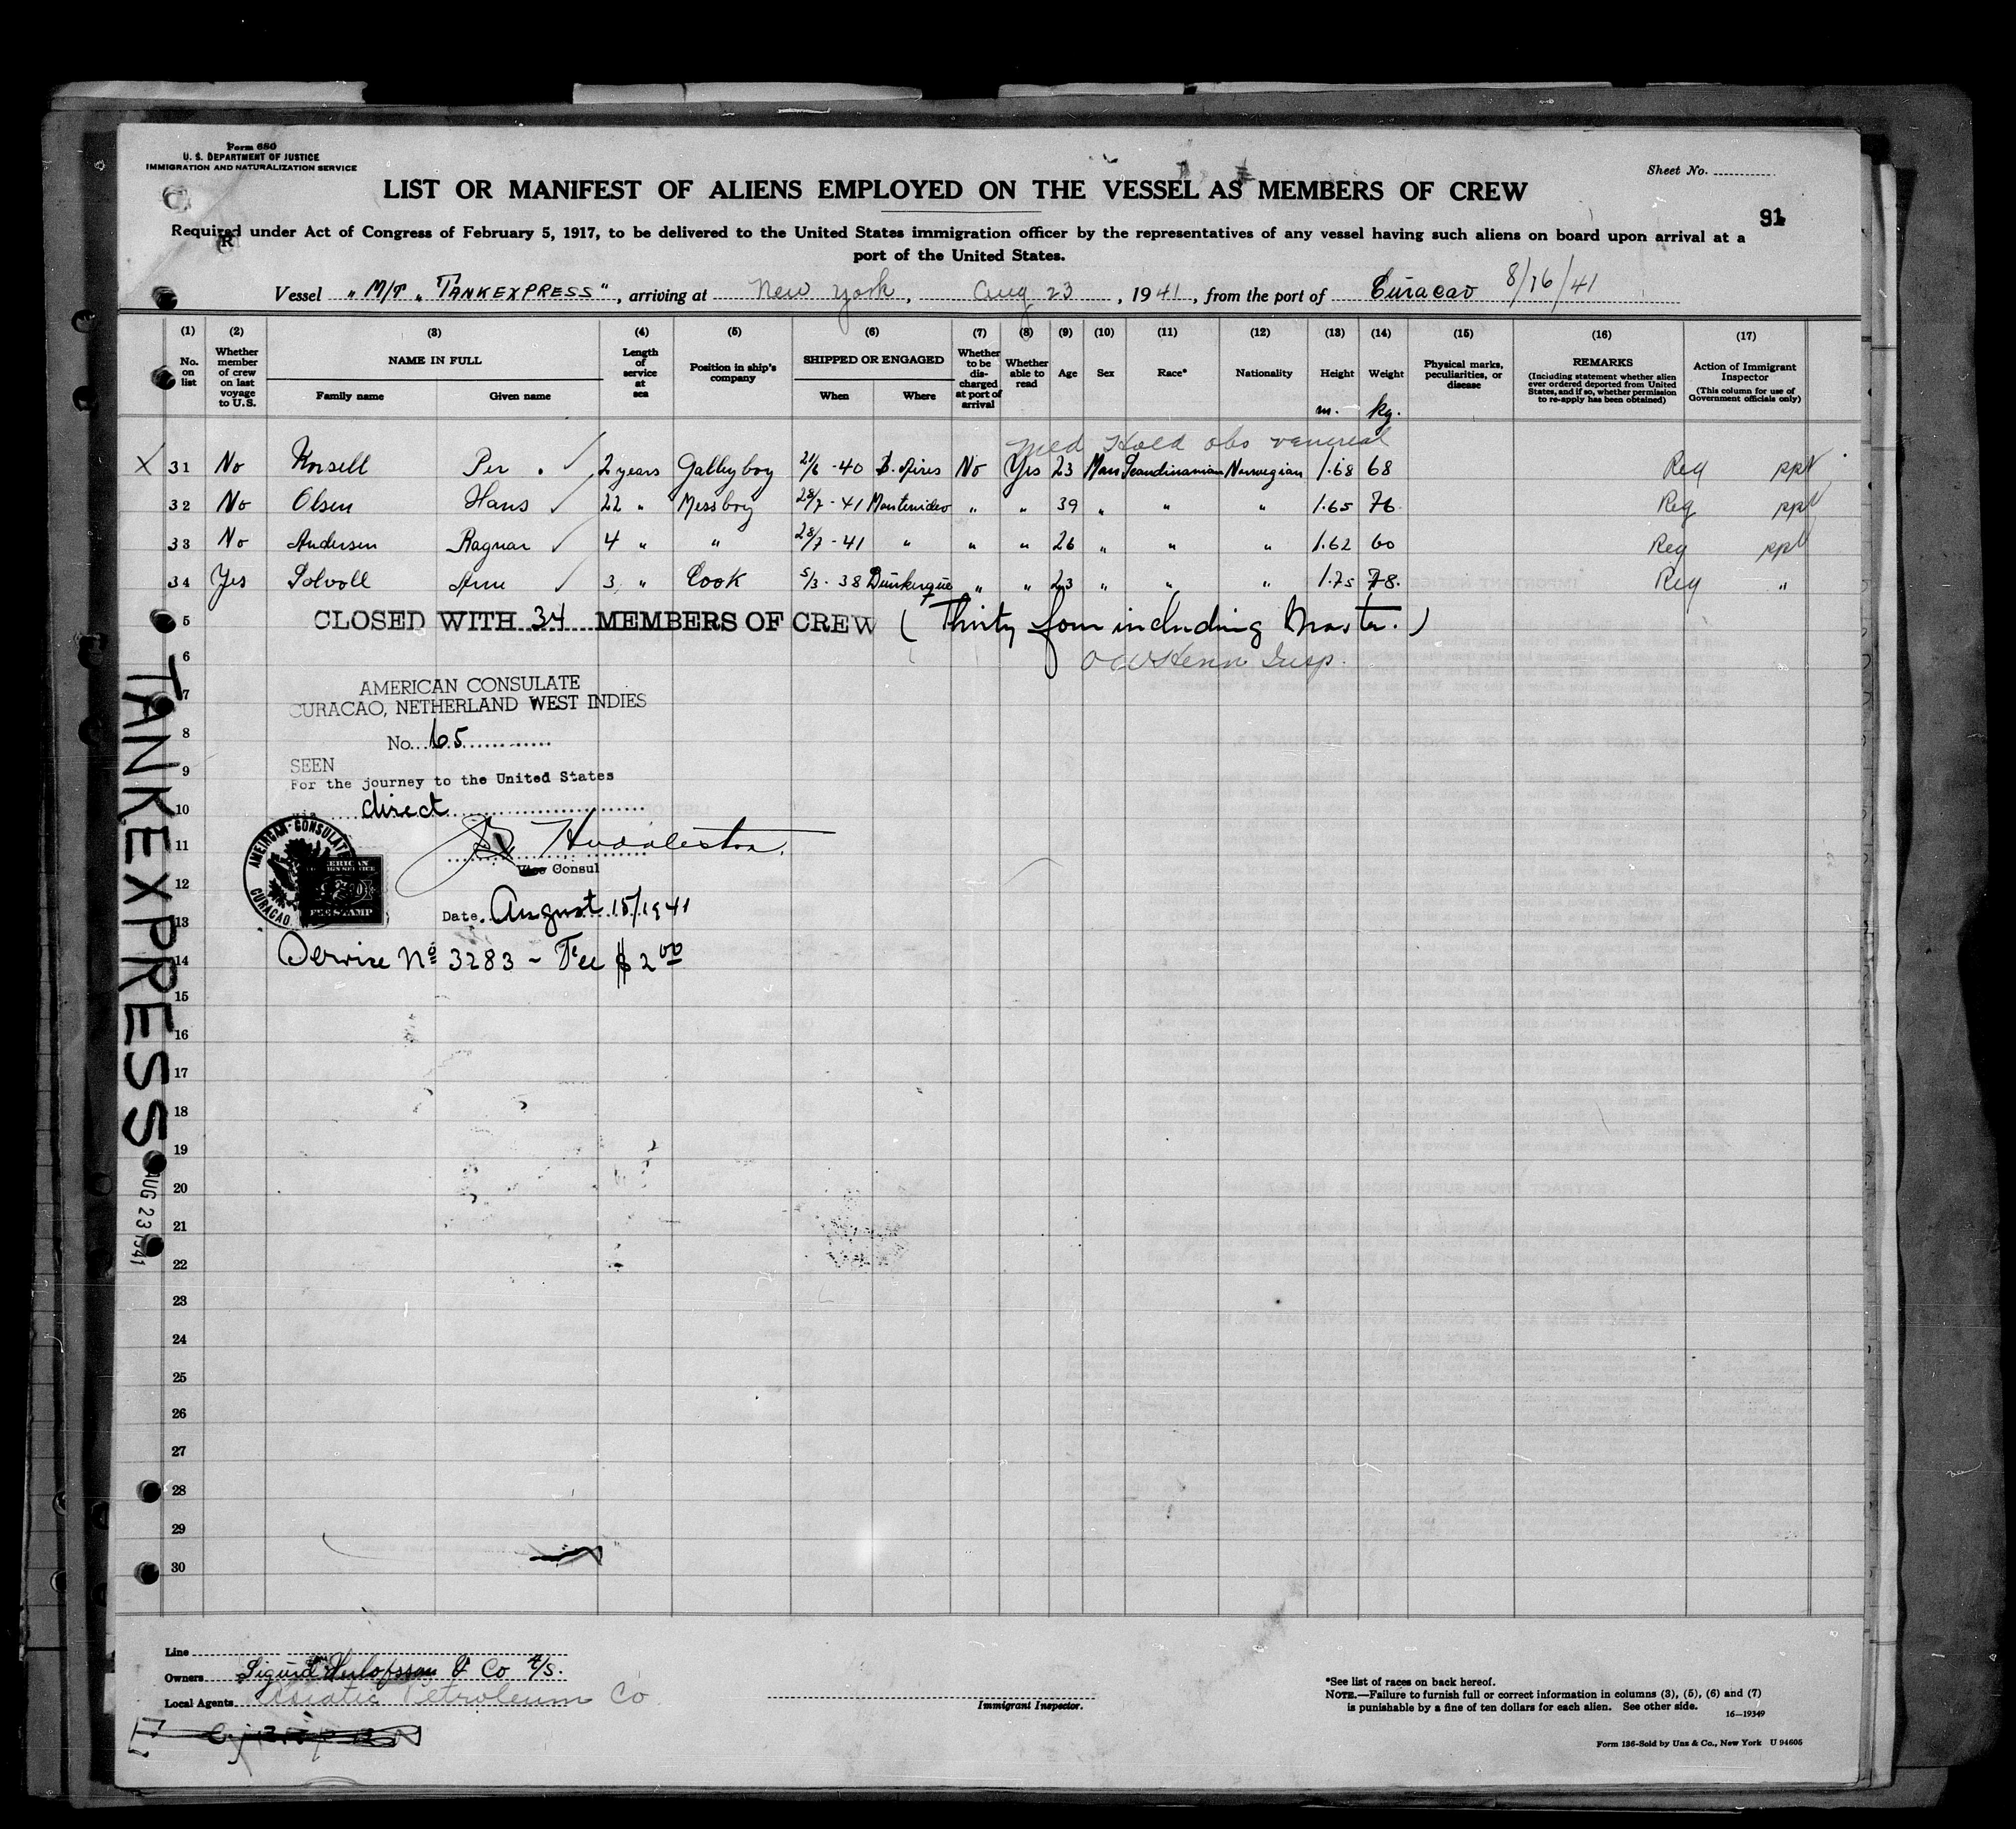 Form 680
U. S. DEPARTMENT OF JUSTICE
IMMIGRATION AND NATURALIZATION SERVICE
Sheet No.
LIST OR MANIFEST OF ALIENS EMPLOYED ON THE VESSEL AS MEMBERS OF CREW
91
R
Required under Act of Congress of February 5, 1917, to be delivered to the United States immigration officer by the representatives of any vessel having such aliens on board upon arrival at a
port of the United States.
Vessel "M/T "TANKEXPRESS", arriving at New York, Aug 23, 1941, from the port of Curacao 8/16/41
(1) (2) (3) (4) (5) (6) (7) (8) (9) (10) (11) (12) (13) (14) (15) (16) (17)
No. on list
Whether member of crew on last voyage to U.S.
NAME IN FULL
Family name Given name
Length of service at sea
Position in ship's company
SHIPPED OR ENGAGED
When Where
Whether to be discharged at port of arrival
Whether able to read
Age
Sex
Race*
Nationality
Height
m.
Weight
kg.
Physical marks, peculiarities, or disease
REMARKS
(Including statement whether alien ever ordered deported from United States, and if so, whether permission to re-apply has been obtained)
Action of Immigrant Inspector
(This column for use of Government officials only)
Med Hold obs venereal
X 31 No Korsell Per 2 years Galley boy 21/6 -40 B. Aires No Yes 23 Man Scandinavian Norwegian 1.68 68 Reg ppt
32 No Olsen Hans 22 " Messboy 28/7 - 41 Montevideo " " 39 " " " 1.65 76 Reg ppt
33 No Andersen Ragnar 4 " " 28/7 - 41 " " " 26 " " " 1.62 60 Reg ppt
34 Yes Solvoll Arne 3 " Cook 5/3 - 38 Dunkerque " " 23 " " " 1.75 78. Reg "
5 CLOSED WITH 34 MEMBERS OF CREW (Thirty four including Master.)
6 Insp.
7 AMERICAN CONSULATE
CURACAO, NETHERLAND WEST INDIES
8 No. 65
9 SEEN
For the journey to the United States
10 via direct
11 Huddleston
Vice Consul
12
13 Date. August 15/1941
14 Service No 3283 - Fee $2 00
AMERICAN CONSULATE
CURACAO
AMERICAN
FOREIGN SERVICE
FEE STAMP
15
16
17
18
19
20
21
22
23
24
25
26
27
28
29
30
TANKEXPRESS
AUG 23 1941
Line
Owners Sigurd Herlofsson & Co A/S.
Local Agents Asiatic Petroleum Co
Immigrant Inspector.
*See list of races on back hereof.
NOTE.—Failure to furnish full or correct information in columns (3), (5), (6) and (7)
is punishable by a fine of ten dollars for each alien. See other side.
16—19349
Form 136-Sold by Unz & Co., New York U 94605